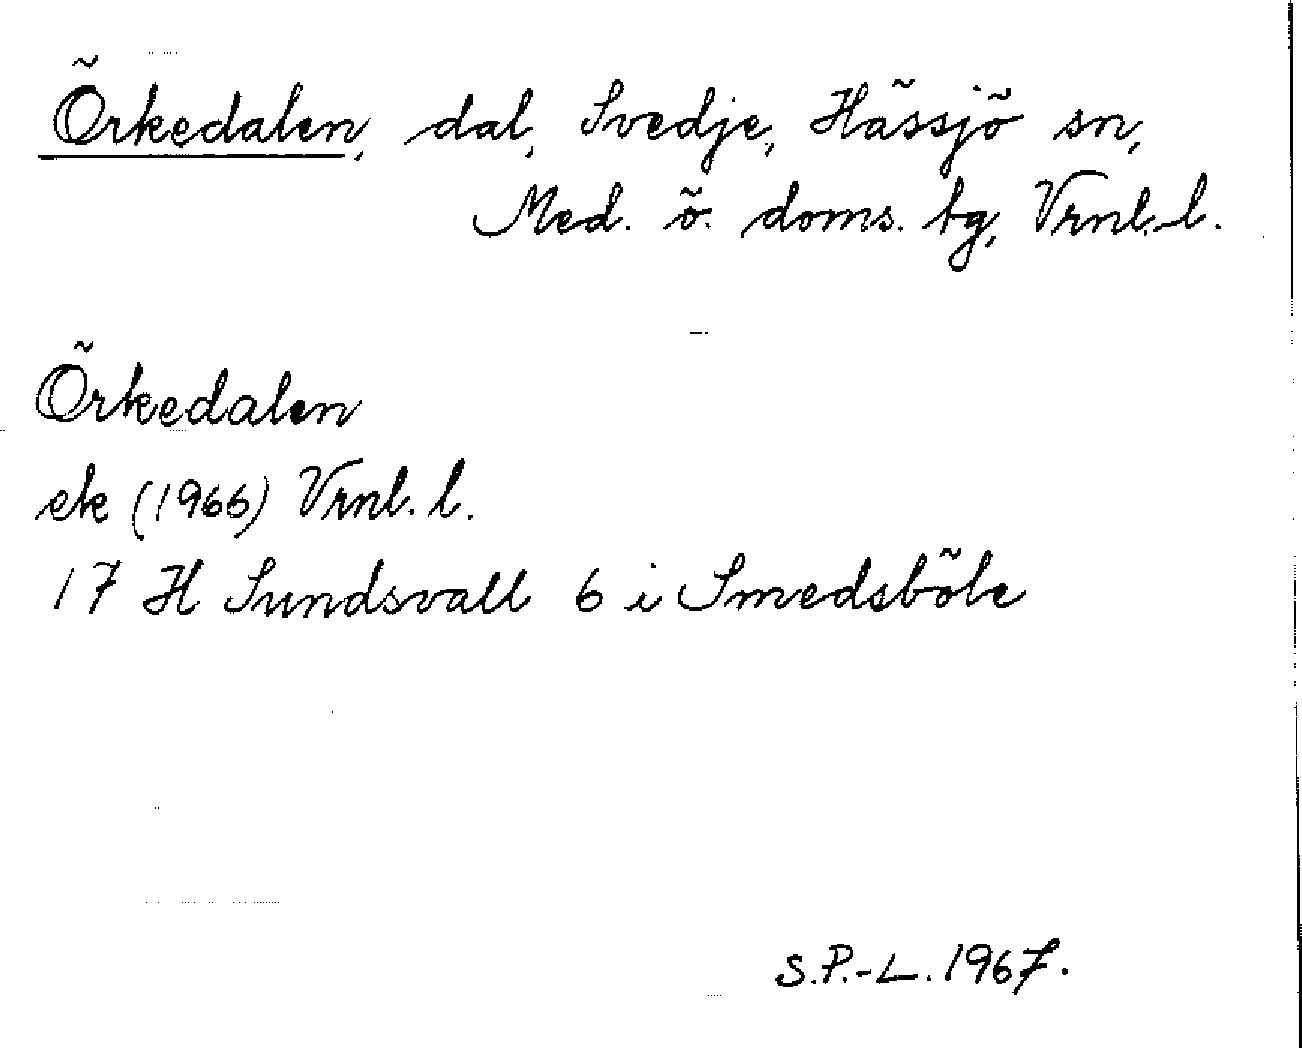 Örkedalen, dal, Svedje, Hässjö sn,
Med. ö. doms. tg, Vrnl. l.
Örkedalen
ek (1966) Vrnl. l.
17 H Sundsvall 6 i Smedsböle
S.P.-L. 1967.